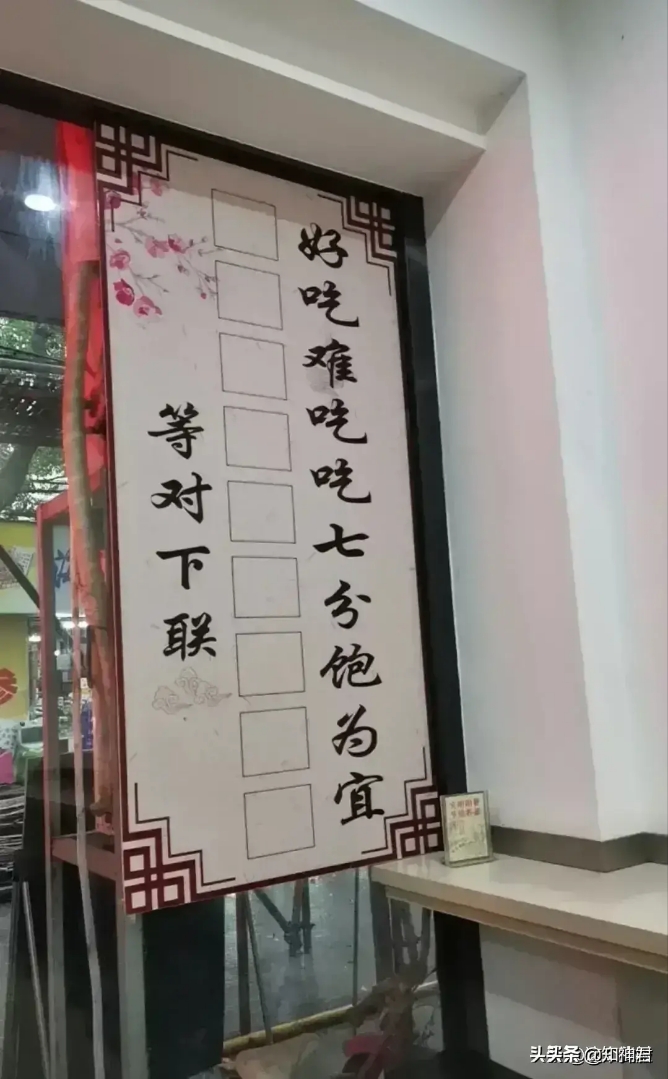 好吃难吃吃七分饱为宜
等对下联
头条